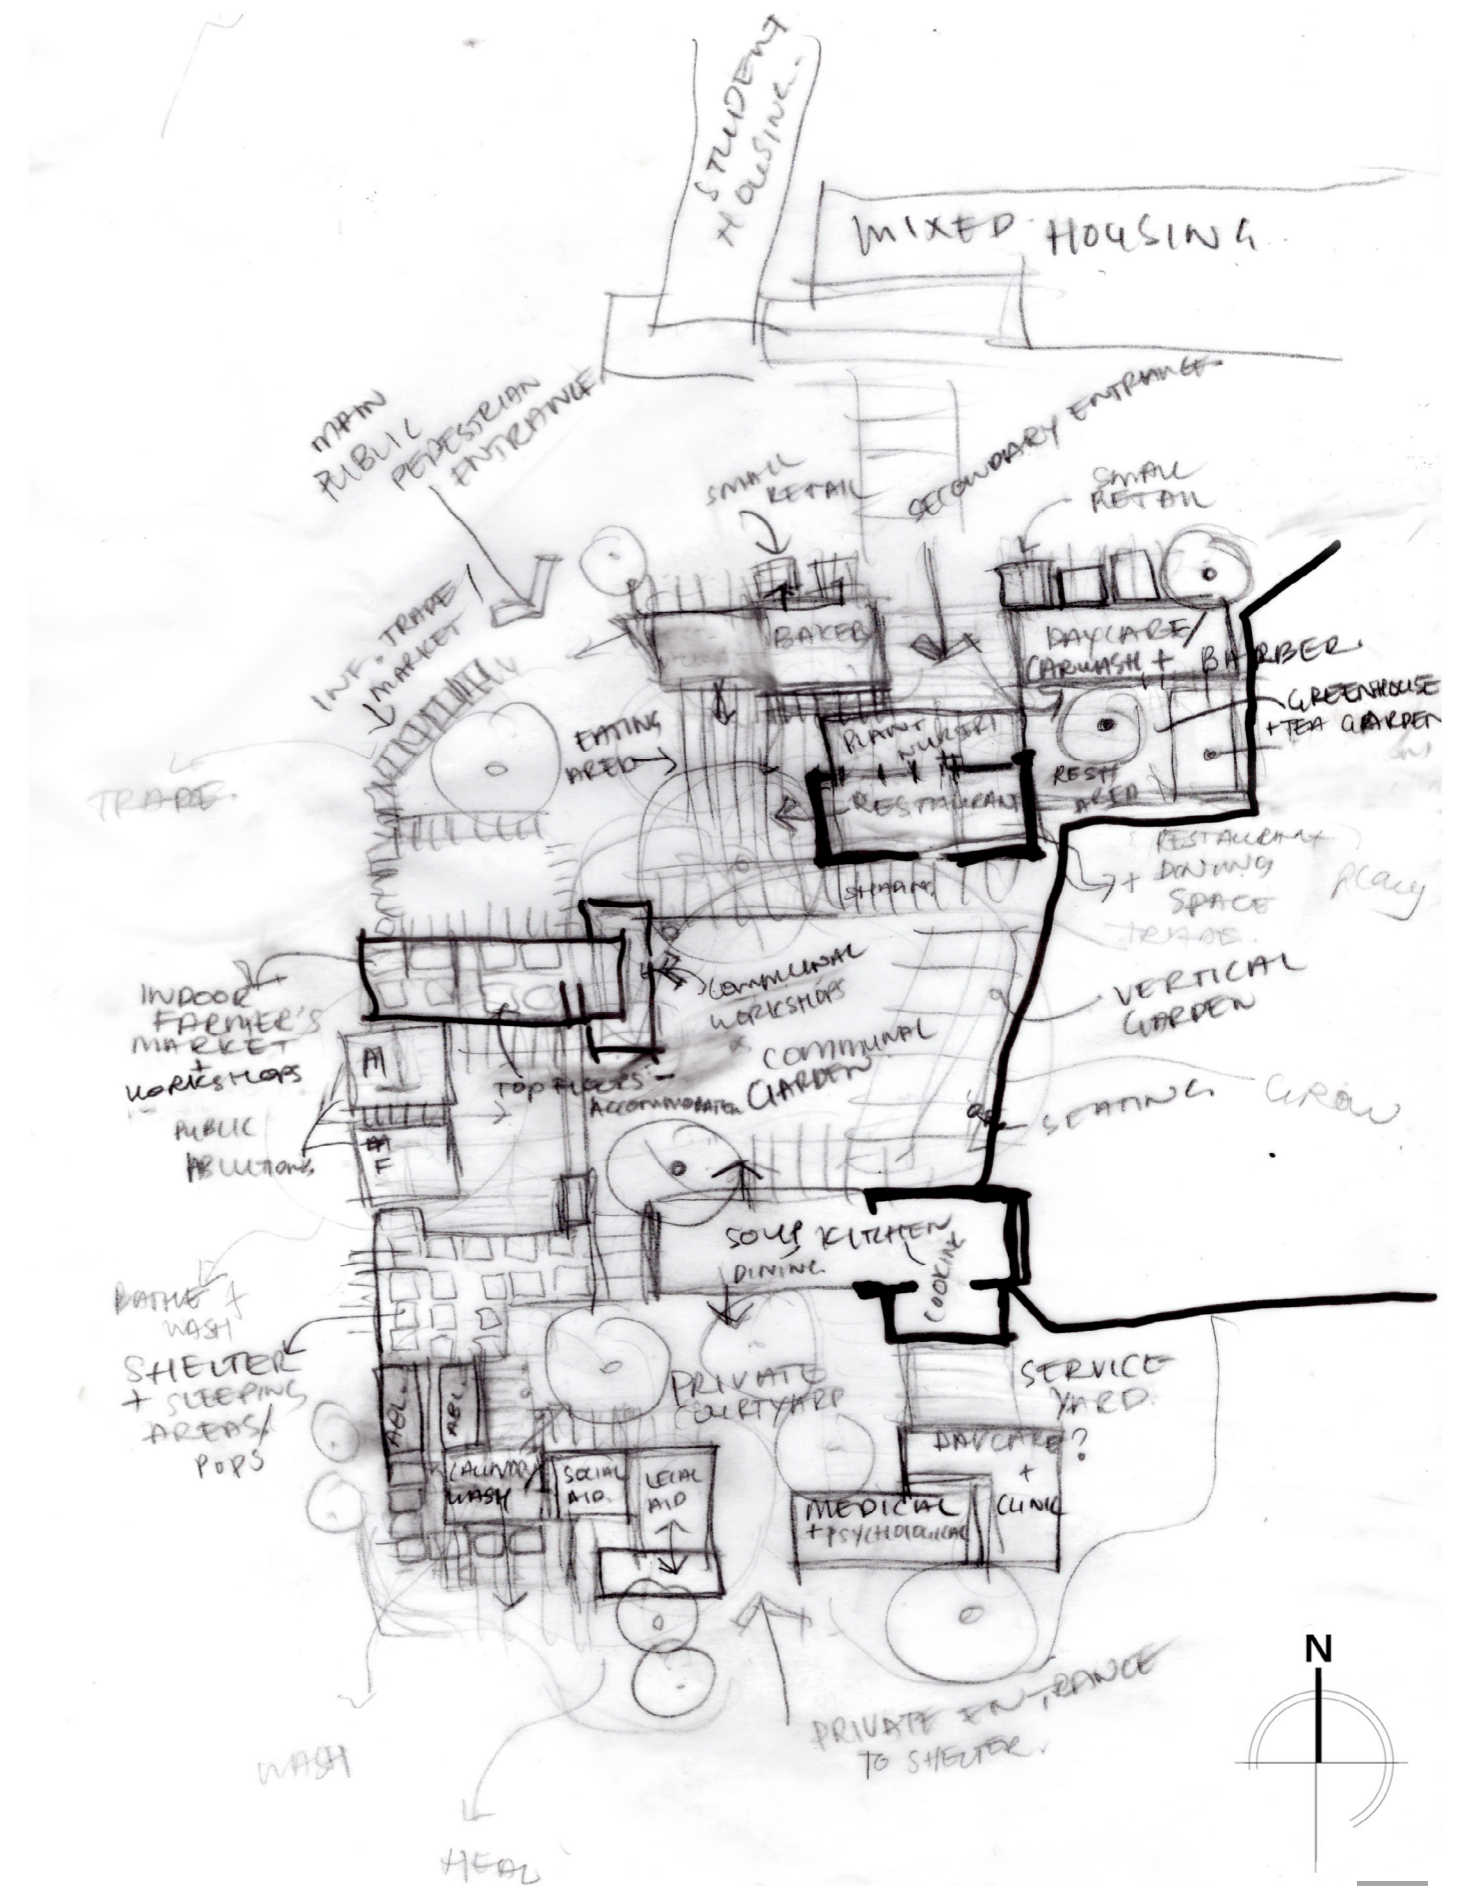 STUDENT
HOUSING.
MIXED HOUSING
MAIN
PUBLIC
PEDESTRIAN
ENTRANCE
SMALL
RETAIL
SECONDARY ENTRANCE
SMALL
RETAIL
INF. TRADE/
MARKET
BAKER
DAYCARE/
CARWASH + BARBER.
GREENHOUSE
+ TEA GARDEN
EATING
AREA
PLANT
NURSERY
RESTAURANT
REST
AREA
TRADE.
RESTAURANT
+ DINING
SPACE
PLAY
TRADE.
SHARING
VERTICAL
GARDEN
INDOOR
FARMER'S
MARKET
+
WORKSHOPS
COMMUNAL
WORKSHOPS
COMMUNAL
GARDEN
M
TOP FLOORS -
ACCOMMODATION
SEATING
GROW
PUBLIC
ABLUTIONS
F
SOUP KITCHEN
DINING
COOKING
BATHE +
WASH
SHELTER
+ SLEEPING
AREAS/
POPS
PRIVATE
COURTYARD
SERVICE
YARD.
ABL.
ABL.
DAYCARE?
+
CLINIC
LAUNDRY
WASH
SOCIAL
AID.
LEGAL
AID
MEDICAL
+ PSYCHOLOGICAL
N
PRIVATE ENTRANCE
TO SHELTER.
WASH
HEAL